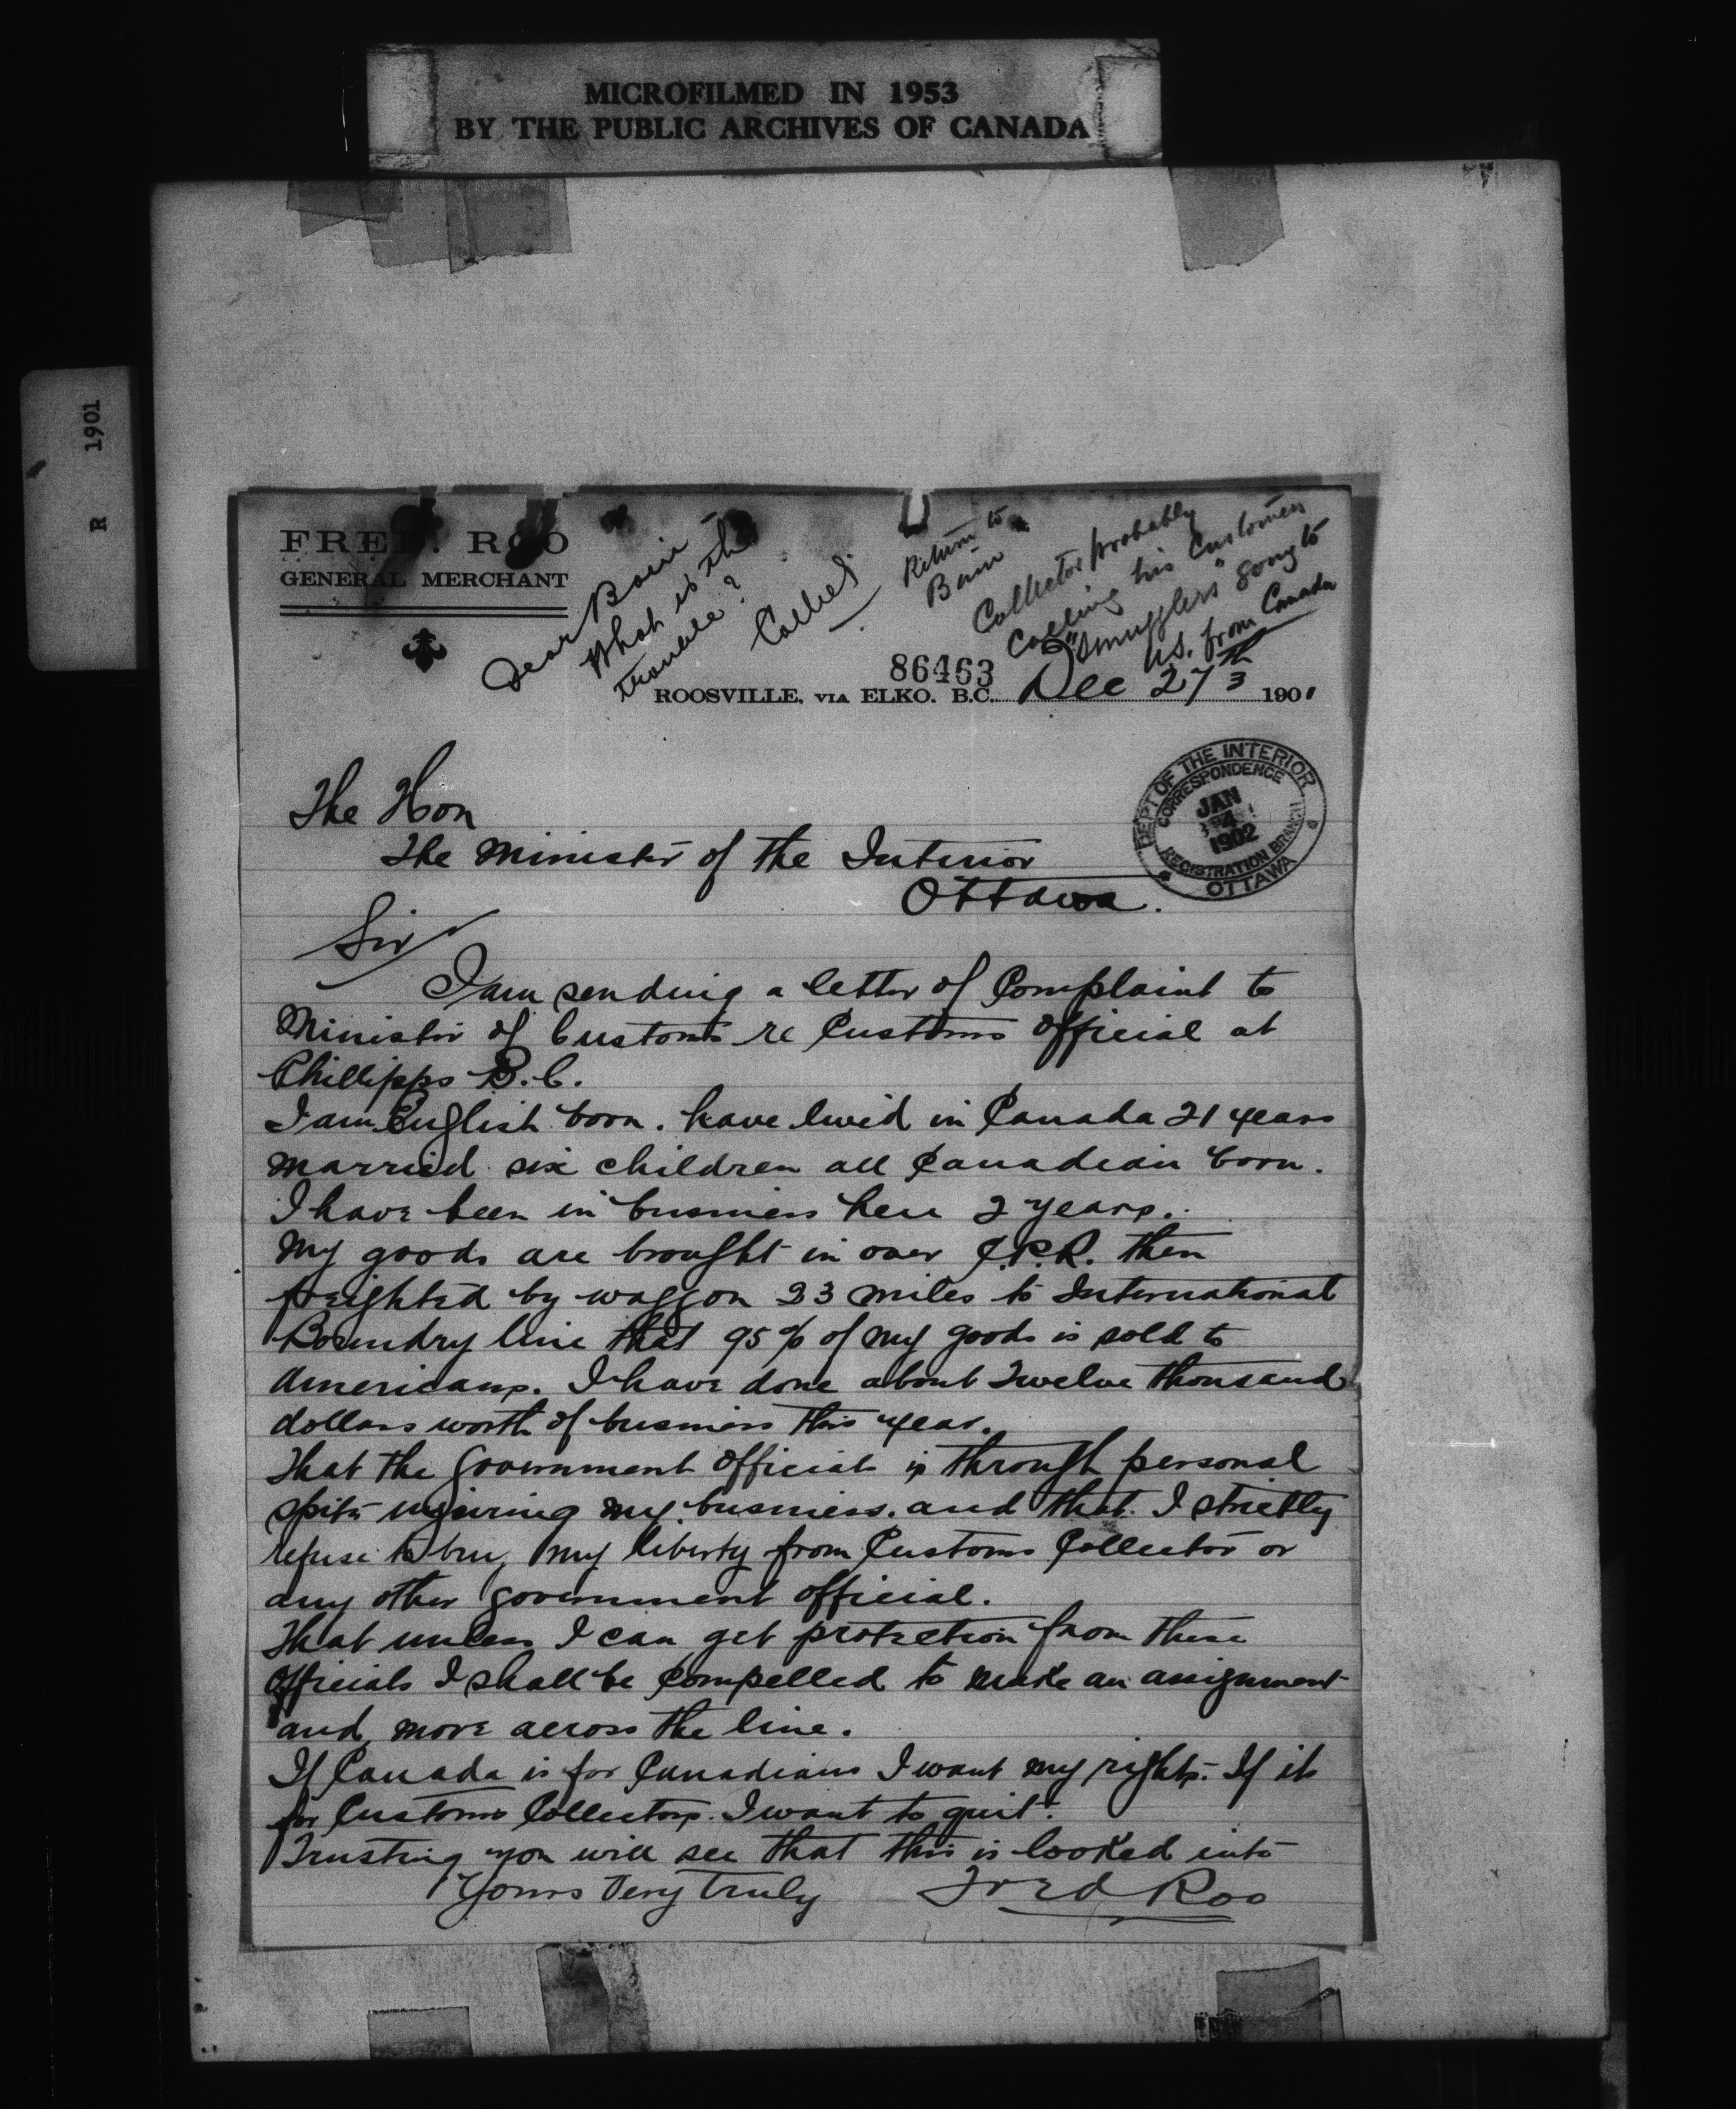 MICROFILMED IN 1953
BY THE PUBLIC ARCHIVES OF CANADA
R 1901
FRED. ROO
GENERAL MERCHANT
Dear Bain
What is the
trouble?
Return to
Bain
Collector probably
calling his customers
"Smugglers" going to
U.S. from Canada
86463
ROOSVILLE, VIA ELKO. B.C. Dec 27th 1901
DEPT OF THE INTERIOR
CORRESPONDENCE
JAN
4
1902
REGISTRATION BRANCH
OTTAWA
The Hon
The Minister of the Interior
Ottawa.
Sir
I am sending a letter of Complaint to
Minister of Customs re Customs Official at
Phillipps B.C.
I am English born. have lived in Canada 21 years
married six children all Canadian born.
I have been in business here 2 years.
My goods are brought in over C.P.R. then
freighted by waggon 33 miles to International
Boundry line that 95% of my goods is sold to
Americans. I have done about Twelve thousand
dollars worth of business this year.
That the Government Official is through personal
spite injuring my business. and that I strictly
refuse to buy my liberty from Customs Collector or
any other government official.
That unless I can get protection from these
Officials I shall be Compelled to make an assignment
and move across the line.
If Canada is for Canadians I want my rights. If its
for Customs Collectors. I want to quit.
Trusting you will see that this is looked into
Yours Very Truly Fred Roo